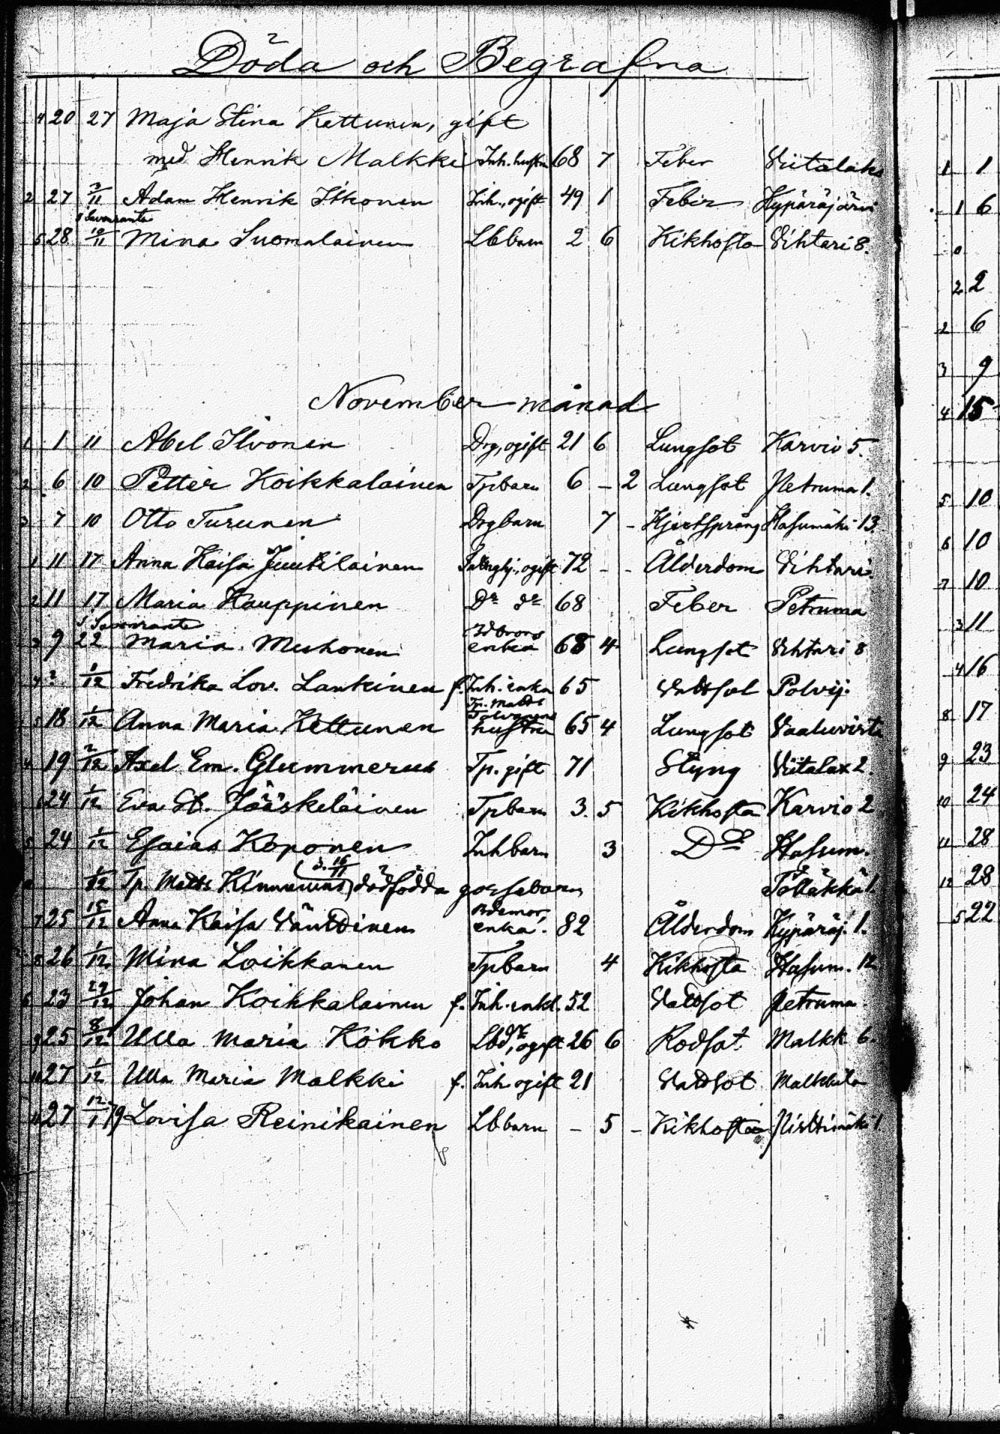 Döda och Begrafna
4 20 27 Maja Stina Kettunen, gift
med Henrik Malkki Inh. hustru 68 7 Feber Viitalaks
2 27 3/11 Adam Henrik Itkonen Inh., ogift 49 1 Feber Kypäräjärvi
i Savoranta
5 28 10/11 Mina Suomalainen Lbbarn 2 6 Kikhosta Vihtari 8.
November månad
1 1 11 Abel Ilvonen Drg, ogift 21 6 Lungsot Karvio 5.
2 6 10 Petter Koikkalainen Tpbarn 6 – 2 Lungsot Petruma 1.
3 7 10 Otto Turunen Drgbarn 7 – Hjertsprång Hasumäki 13
1 11 17 Anna Kaisa Juutilainen ogift 72 – – Ålderdom Vihtari.
2 11 17 Maria Kauppinen Dº dº 68 Feber Petruma
i Savoranta
3 9 22 Maria Muhonen enka 68 4 Lungsot Vihtari 8
4 1/12 Fredrika Lov. Lankinen f. Inh. enka 65 Vattsot Polvij.
5 18 1/12 Anna Maria Kettunen hustru 65 4 Lungsot Vaaluvirta
4 19 2/12 Axel Em. Glummerus Tp. gift 71 Styng Viitalax 2.
24 1/12 Eva St. Jääskeläinen Tpbarn 3. 5 Kikhosta Karvio 2
5 24 1/12 Esaias Koponen Inhbarn 3 Dº Hasum.
1/12 Tp Matts Kinnunens dödfödda gossebarn
7 25 15/12 Anna Kaisa Vänttinen enka. 82 Ålderdom Kypäräj. 1.
8 26 1/12 Mina Loikkanen Tpbarn 4 Kikhosta Hasum. 12
6 23 29/12 Johan Koikkalainen f. Inh. enkl. 52 Vattsot Petruma
9 25 8/12 Ulla Maria Kokko ogift 26 6 Rodsot Malkk 6.
27 1/12 Ulla Maria Malkki f. Inh ogift 21 Vattsot Malkkila
27 12/1 79 Lovisa Reinikainen Lbbarn – 5 – Kikhosta
1 1
1 6
2 2
2 6
3 9
4 15
5 10
6 10
7 10
3 11
4 16
8 17
9 23
10 24
11 28
12 28
5 22